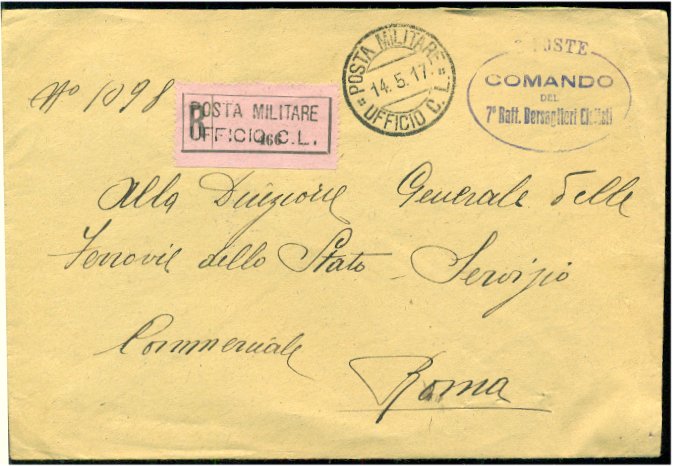 No 1098
POSTA MILITARE
R UFFICIO C.L.
466
POSTA MILITARE
14.5.17.
UFFICIO C.L.
POSTE
COMANDO
DEL
7° Batt. Bersaglieri Ciclisti
Alla Direzione Generale delle
Ferrovie dello Stato - Servizio
Commerciale
Roma